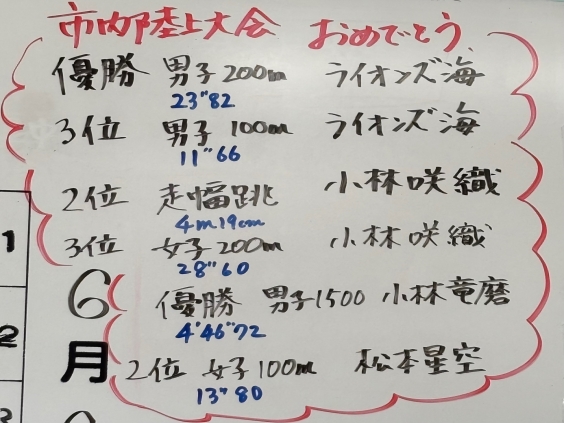 市内陸上大会 おめでとう
優勝 男子200m ライオンズ海
23"82
3位 男子 100m ライオンズ海
11"66
2位 走幅跳 小林咲織
4m19cm
3位 女子200m 小林咲織
28"60
優勝 男子1500 小林竜磨
4'46"72
2位 女子100m 松本星空
13"80
6月
1
2
3